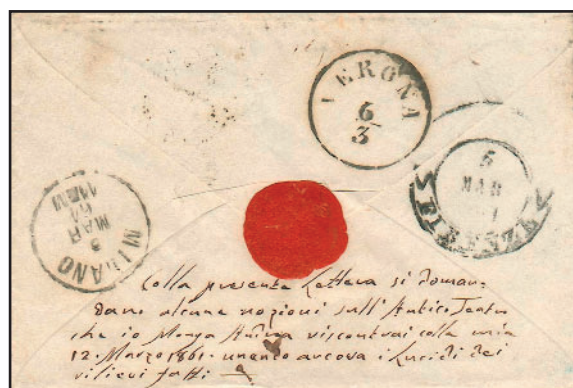 VERONA
6/3
5
MAR
61
FIRENZE
MILANO
MAR
61
Colla presente Lettera si doman=
dano alcune nozioni sull'Antico Teatro
che io Monga Andrea riscontrai colla mia
12. Marzo 1861. unendo ancora i Lucidi dei
rilievi fatti